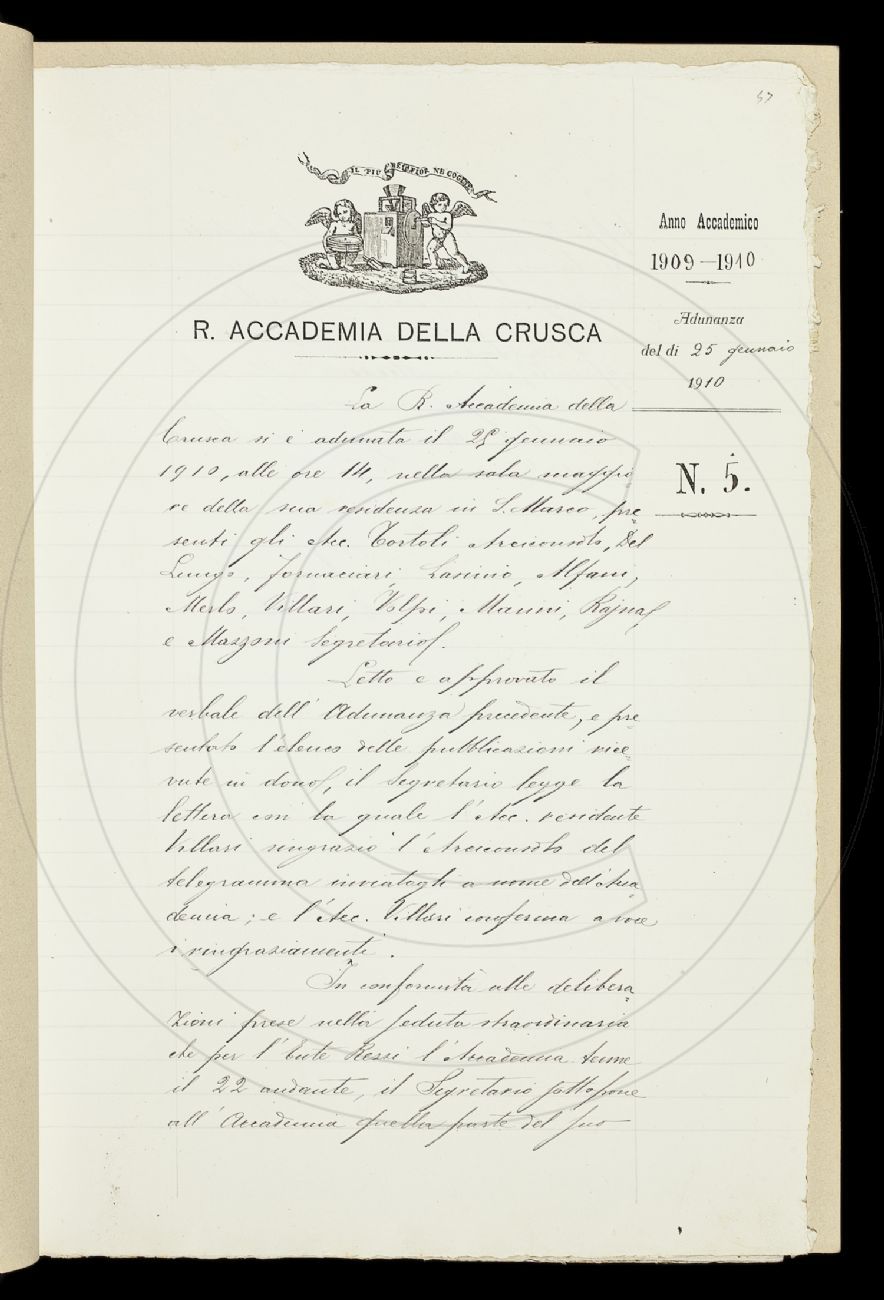 57
IL PIÙ BEL FIOR NE COGLIE
R. ACCADEMIA DELLA CRUSCA
Anno Accademico
1909-1910
Adunanza
del dì 25 gennaio
1910
N. 5.
La R. Accademia della
Crusca si è adunata il 25 gennaio
1910, alle ore 14, nella sala maggio-
re della sua residenza in S. Marco, pre-
senti gli Acc. Tortoli Arciconsolo, Del
Lungo, Fornaciari, Lasinio, Alfani,
Merlo, Villari, Volpi, Manni, Rajna,
e Mazzoni Segretario.
Letto e approvato il
verbale dell'Adunanza precedente, e pre-
sentato l'elenco delle pubblicazioni rice-
vute in dono, il Segretario legge la
lettera con la quale l'Acc. residente
Villari ringraziò l'Arciconsolo del
telegramma inviatogli a nome dell'Acca-
demia; e l'Acc. Villari conferma a voce
i ringraziamenti.
In conformità alle delibera-
zioni prese nella seduta straordinaria
che per l'Ente Rezzi l'Accademia tenne
il 22 andante, il Segretario sottopone
all'Accademia quella parte del suo